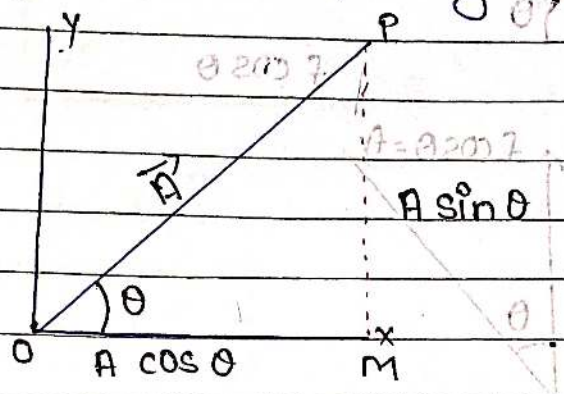 y
P
A
A sin θ
θ
O
A cos θ
M
x